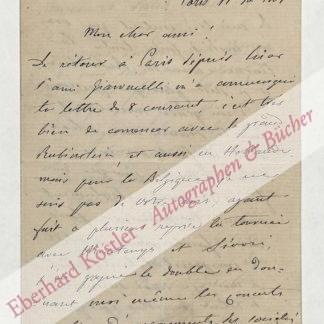 Paris
Mon cher ami!
De retour à Paris depuis hier
l'ami Giannelli m'a communiqué
ta lettre de 8 courant, c'est très
bien de comencer avec le grand
Rubinstein, et aussi en Hollande
mais pour la Belgique je ne
suis pas de votre, ayant
fait à plusieurs reprise la tournée
avec et Sivori,
j'ai gagné le double en don-
nant moi même les Concerts
de sociétés
Eberhard Köstler Autographen & Bücher